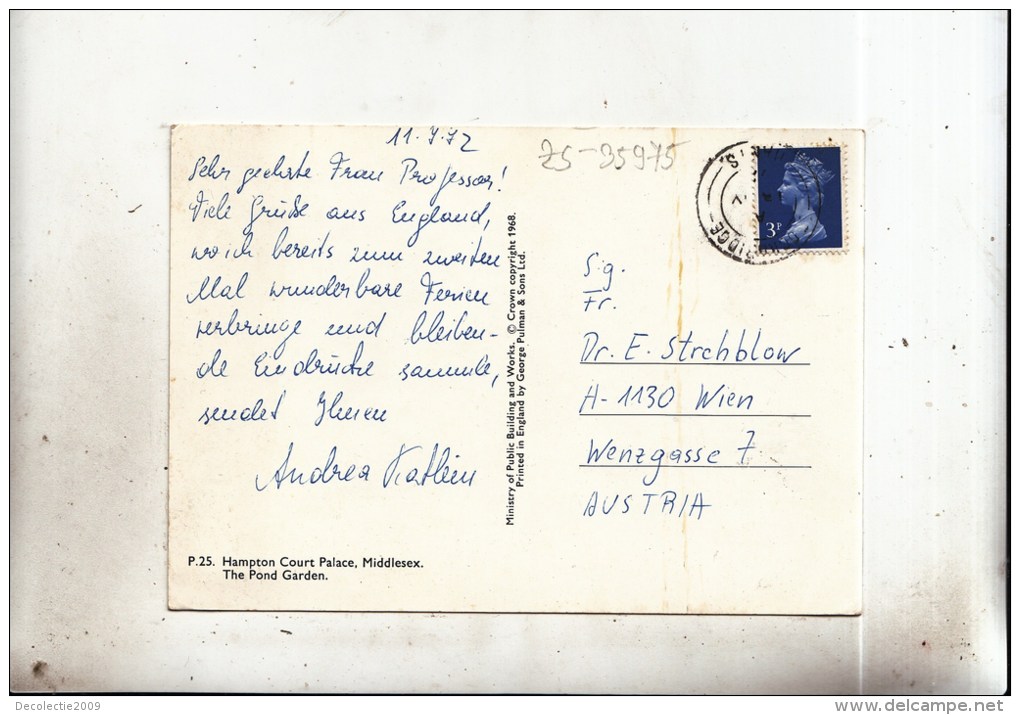 11.7.72
ZS-35975
Sehr geehrte Frau Professor!
Viele Grüße aus England,
wo ich bereits zum zweiten
Mal wunderbare Ferien
verbringe und bleiben-
de Eindrücke sammle,
sendet Ihnen
Andrea
P.25. Hampton Court Palace, Middlesex.
The Pond Garden.
Ministry of Public Building and Works. © Crown copyright 1968.
Printed in England by George Pulman & Sons Ltd.
3P
Sig.
Fr.
Dr. E. Strchblow
A-1130 Wien
Wenzgasse 7
AUSTRIA
Decolectie2009
delcampe.net